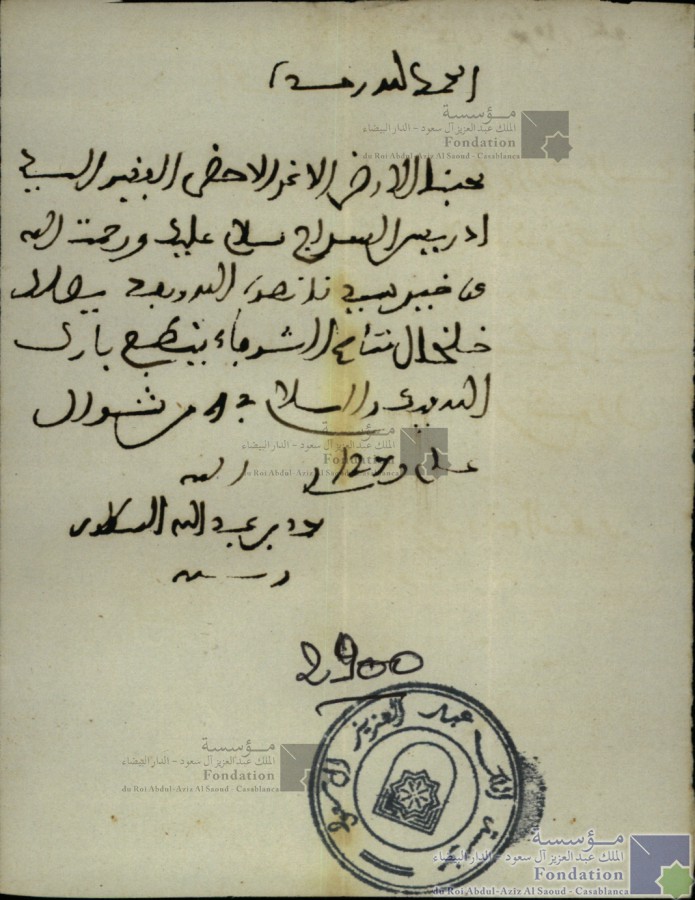 الحمد لله وحده
محبنا الارضى الاعز الاحضى الفقيه السيد
ادريس السراج سلام عليك ورحمت الله
عن خير سيدنا نصره الله وبعد يصلك
خلخال نتاع الشرفاء بتطبع بارك
الله فيك والسلام في 8 من شوال
عام 1279
عبد الله
وفقه الله
2900
مؤسسة الملك عبد العزيز آل سعود
مؤسسة
الملك عبد العزيز آل سعود - الدار البيضاء
Fondation
du Roi Abdul-Aziz Al Saoud - Casablanca
مؤسسة
الملك عبد العزيز آل سعود - الدار البيضاء
Fondation
du Roi Abdul-Aziz Al Saoud - Casablanca
مؤسسة
الملك عبد العزيز آل سعود - الدار البيضاء
Fondation
du Roi Abdul-Aziz Al Saoud - Casablanca
مؤسسة
الملك عبد العزيز آل سعود - الدار البيضاء
Fondation
du Roi Abdul-Aziz Al Saoud - Casablanca